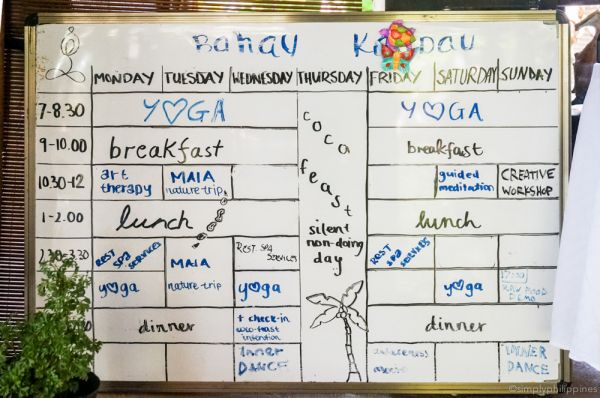 Bahay
MONDAY TUESDAY WEDNESDAY THURSDAY FRIDAY SATURDAY SUNDAY
7-8.30 Y♡GA Y♡GA
9-10.00 breakfast breakfast
10.30-12 art therapy MAIA nature-trip guided meditation CREATIVE WORKSHOP
1-2.00 lunch lunch
coca feast
silent
non-doing
day
2.30-3.30 REST SPA SERVICES MAIA nature-trip REST SPA SERVICES REST SPA SERVICES
y♡ga y♡ga y♡ga RAW FOOD DEMO
dinner + check-in coco-feast intention dinner
Inner DANCE INNER DANCE
©simplyphilippines